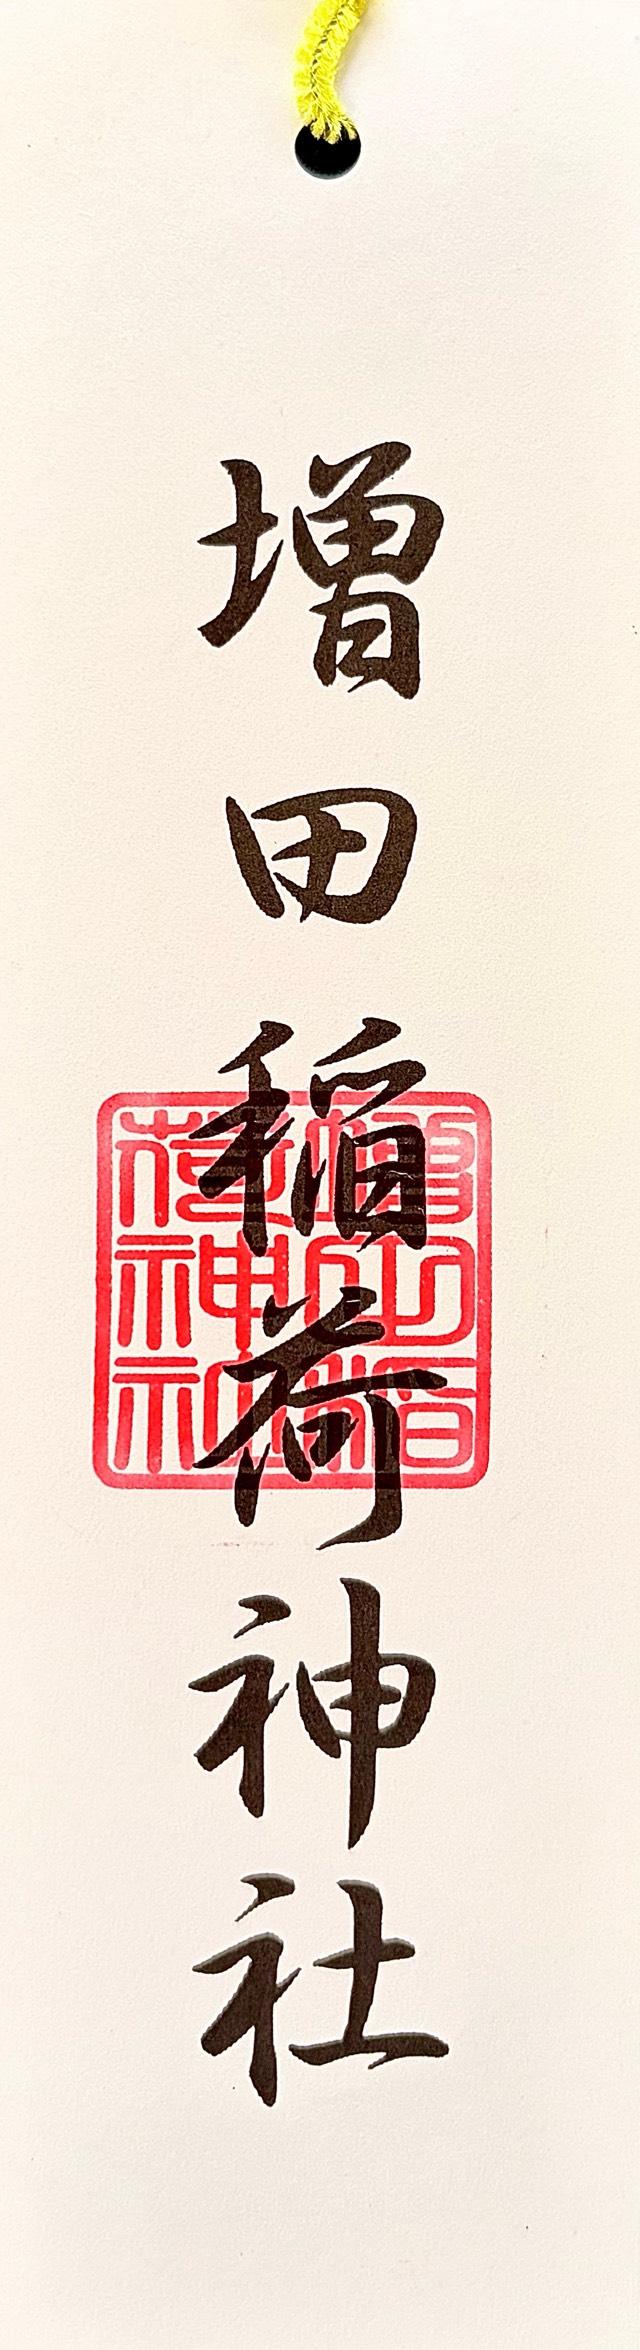 増田稲荷神社
山稲
荷神社